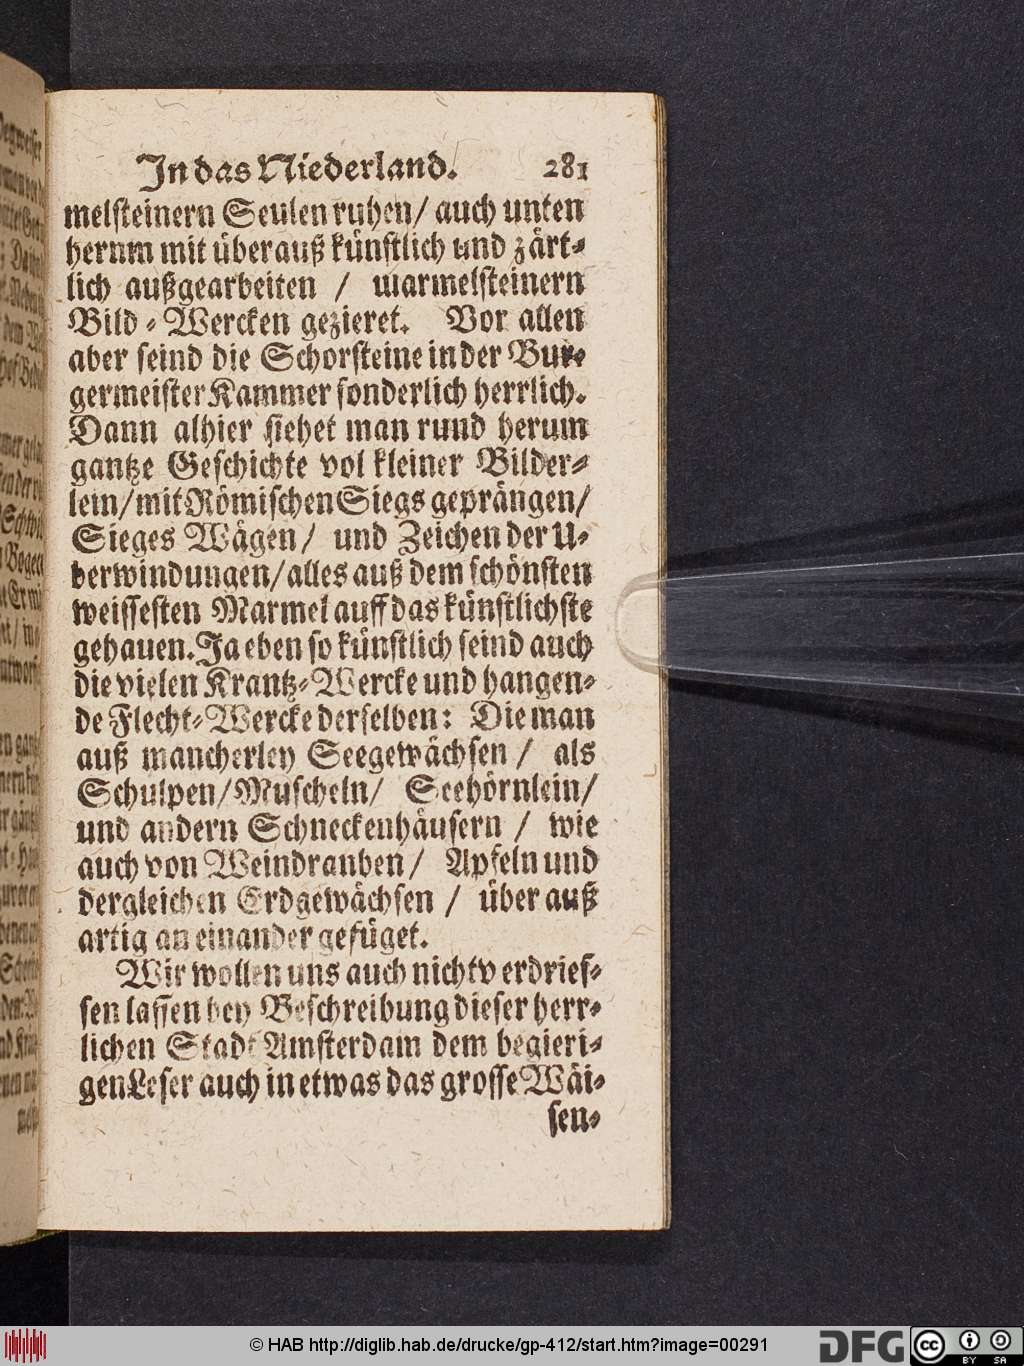 In das Niederland. 281
melsteinern Seulen ruhen/ auch unten
hernm mit überauß künstlich und zärt-
lich außgearbeiten / marmelsteinern
Bild-Wercken gezieret. Vor allen
aber seind die Schorsteine in der Bur-
germeister Kammer sonderlich herrlich.
Dann alhier siehet man rund herum
gantze Geschichte vol kleiner Bilder-
lein/mit Römischen Siegs geprängen/
Sieges Wägen/ und Zeichen der U-
berwindungen/alles auß dem schönsten
weissesten Marmel auff das künstlichste
gehauen. Ja eben so künstlich seind auch
die vielen Krantz-Wercke und hangen-
de Flecht-Wercke derselben: Die man
auß mancherley Seegewächsen / als
Schulpen/Muscheln/ Seehörnlein/
und andern Schneckenhäusern / wie
auch von Weindranben/ Apfeln und
dergleichen Erdgewächsen / über auß
artig an einander gefüget.
Wir wollen uns auch nichtv erdries-
sen lassen bey Beschreibung dieser herr-
lichen Stadt Amsterdam dem begieri-
gen Leser auch in etwas das grosse Wäi-
sen-
© HAB http://diglib.hab.de/drucke/gp-412/start.htm?image=00291
DFG
cc
BY SA